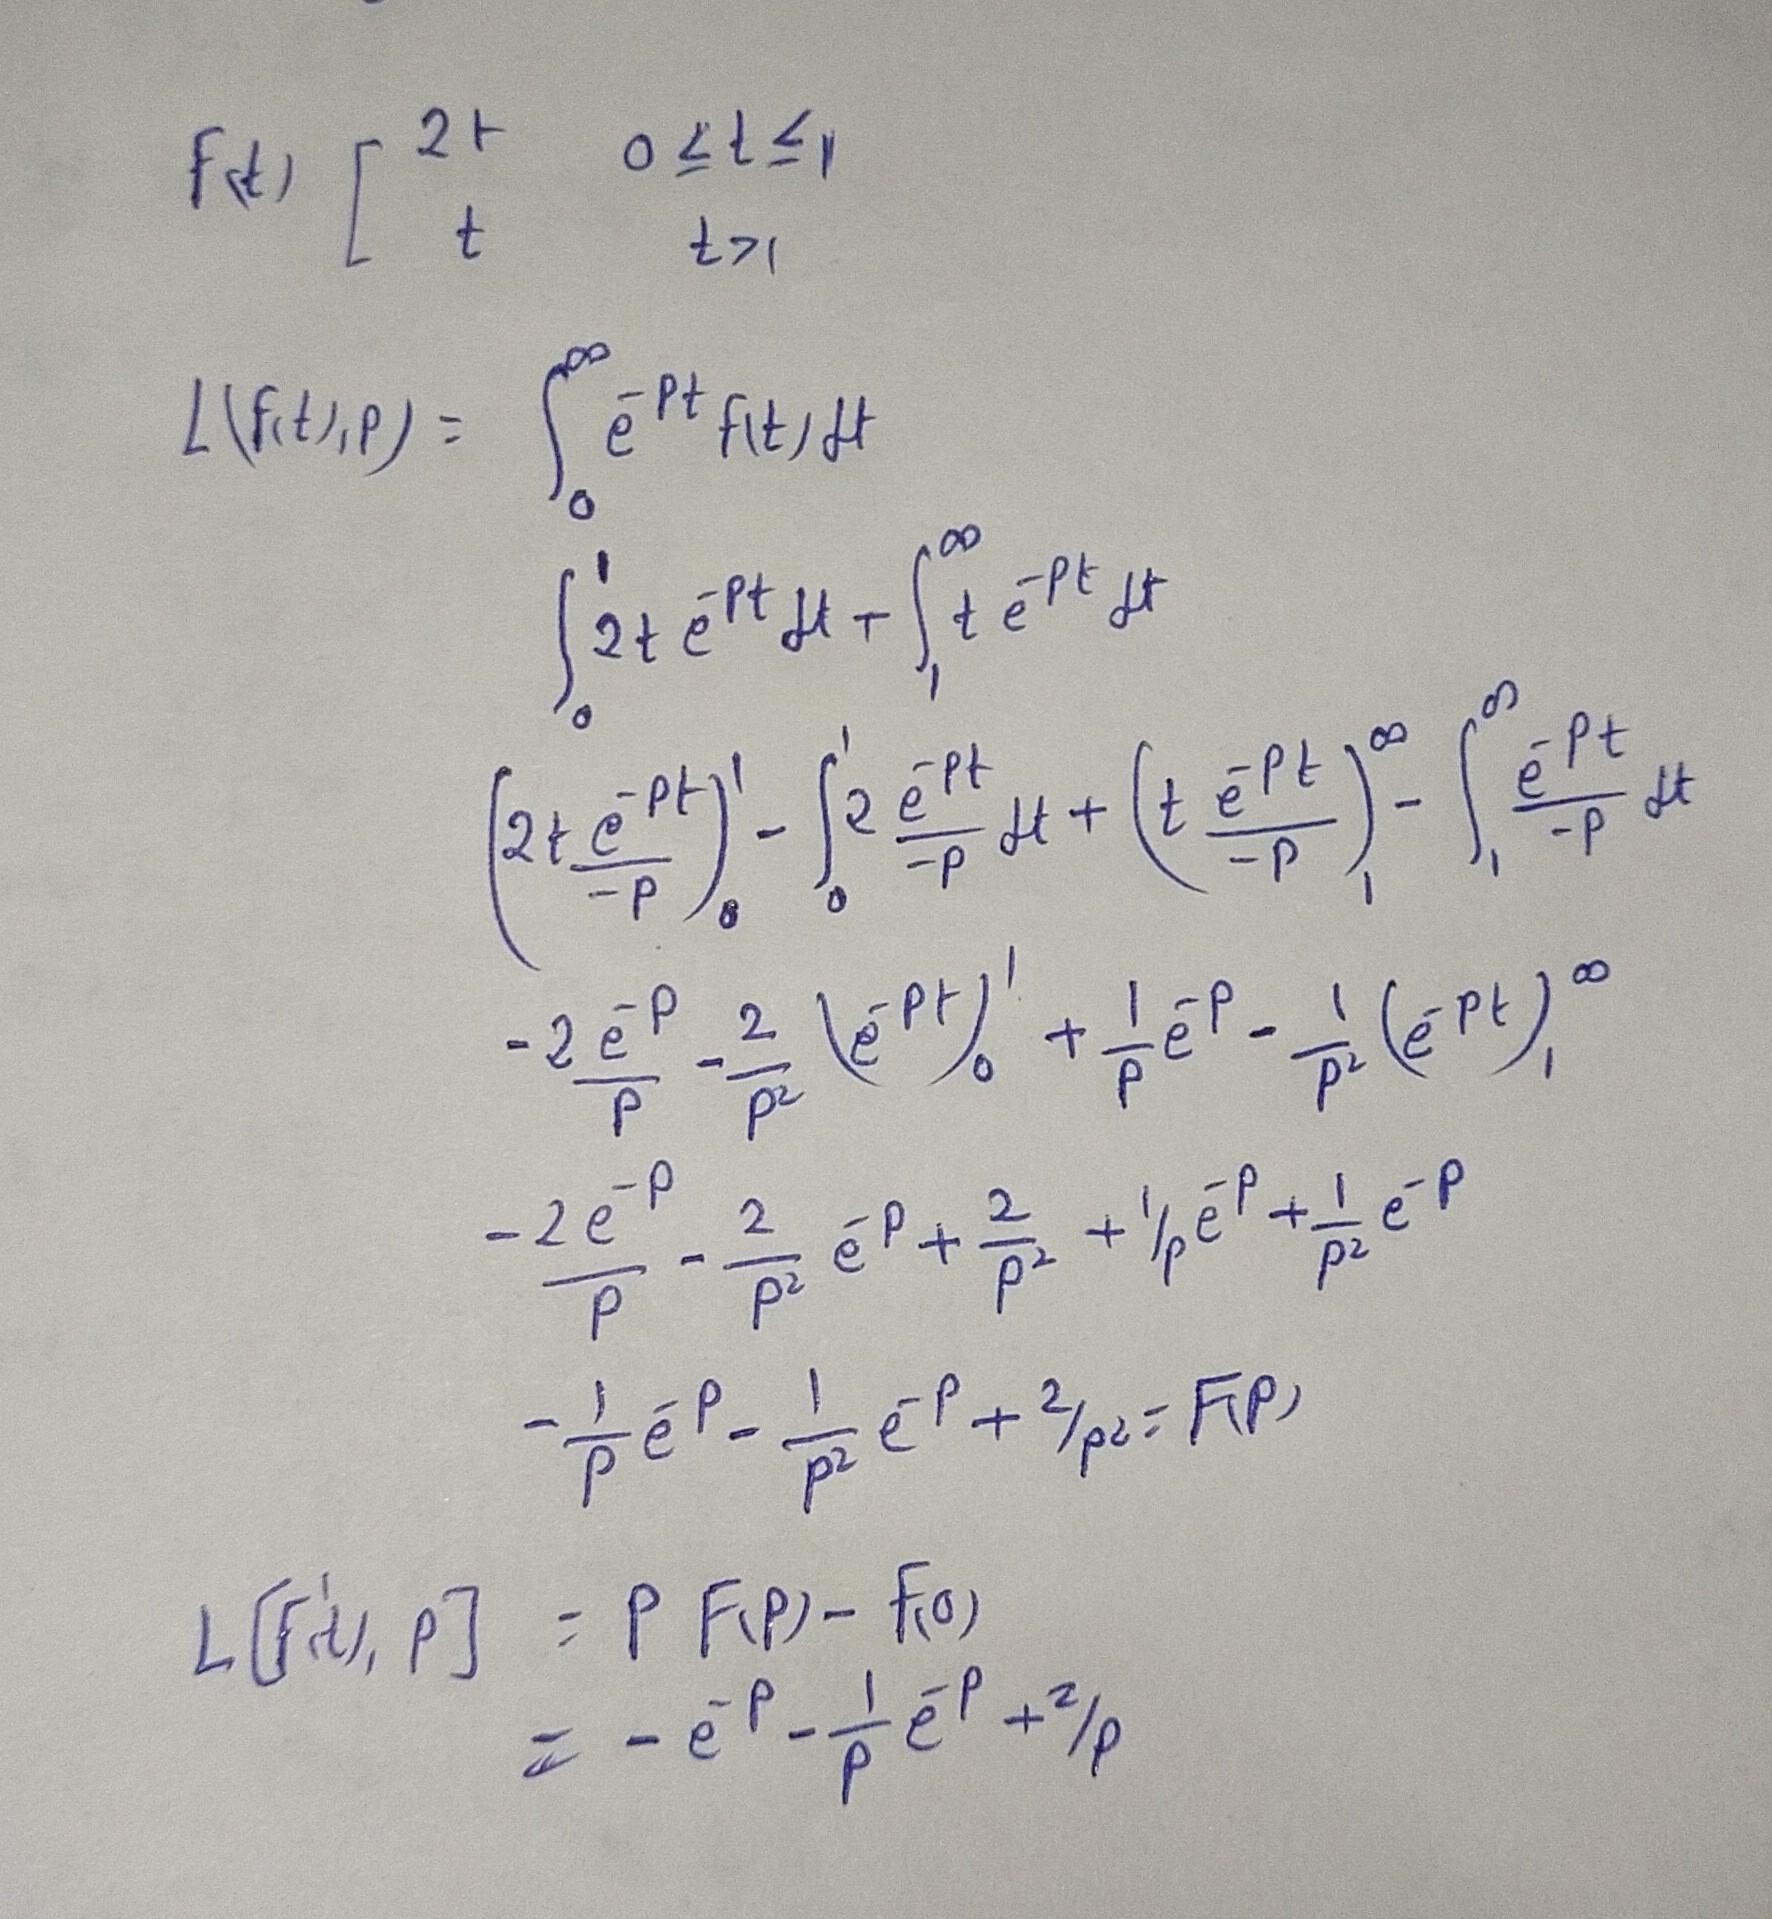 f(t) [ 2t 0 ≤ t ≤ 1
t t>1
L(f(t),p) = ∫₀^∞ e^{-pt} f(t) dt
∫₀^1 2t e^{-pt} dt + ∫₁^∞ t e^{-pt} dt
(2t e^{-pt}/-p)₀^1 - ∫₀^1 2 e^{-pt}/-p dt + (t e^{-pt}/-p)₁^∞ - ∫₁^∞ e^{-pt}/-p dt
-2e^{-p}/p - 2/p² (e^{-pt})₀^1 + 1/p e^{-p} - 1/p² (e^{-pt})₁^∞
-2e^{-p}/p - 2/p² e^{-p} + 2/p² + 1/p e^{-p} + 1/p² e^{-p}
-1/p e^{-p} - 1/p² e^{-p} + 2/p² = F(p)
L[f'(t), p] = p F(p) - f(0)
= -e^{-p} - 1/p e^{-p} + 2/p